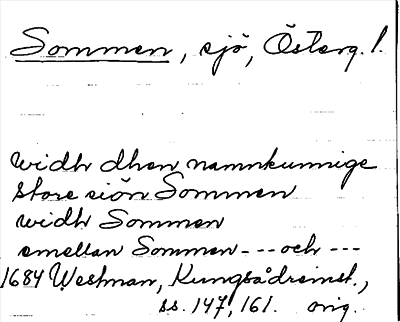 Sommen, sjö, Österg. l.
widh dhen namnkunnige
store siön Sommen
widh Sommen
emellan Sommen --- och ---
1684 Westman, Kungsådreinst.,
ss. 147, 161. orig.